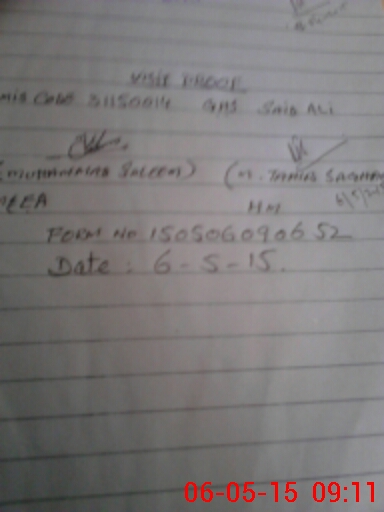 VISIT PROOF
MIS Code 31150014 GHS Said Ali
Saleem) (M.
MEEA HM
FORM No 150506090652
Date : 6-5-15.
06-05-15 09:11